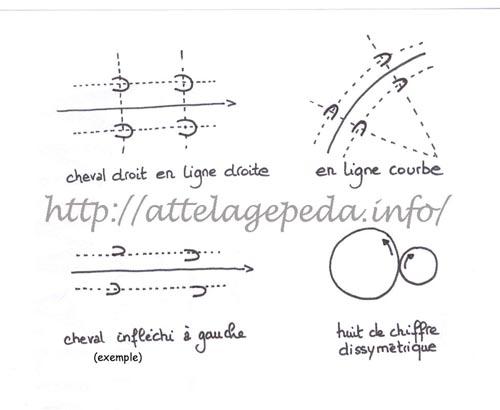 cheval droit en ligne droite
en ligne courbe
http://attelagepeda.info/
cheval infléchi à gauche
(exemple)
huit de chiffre
dissymètrique